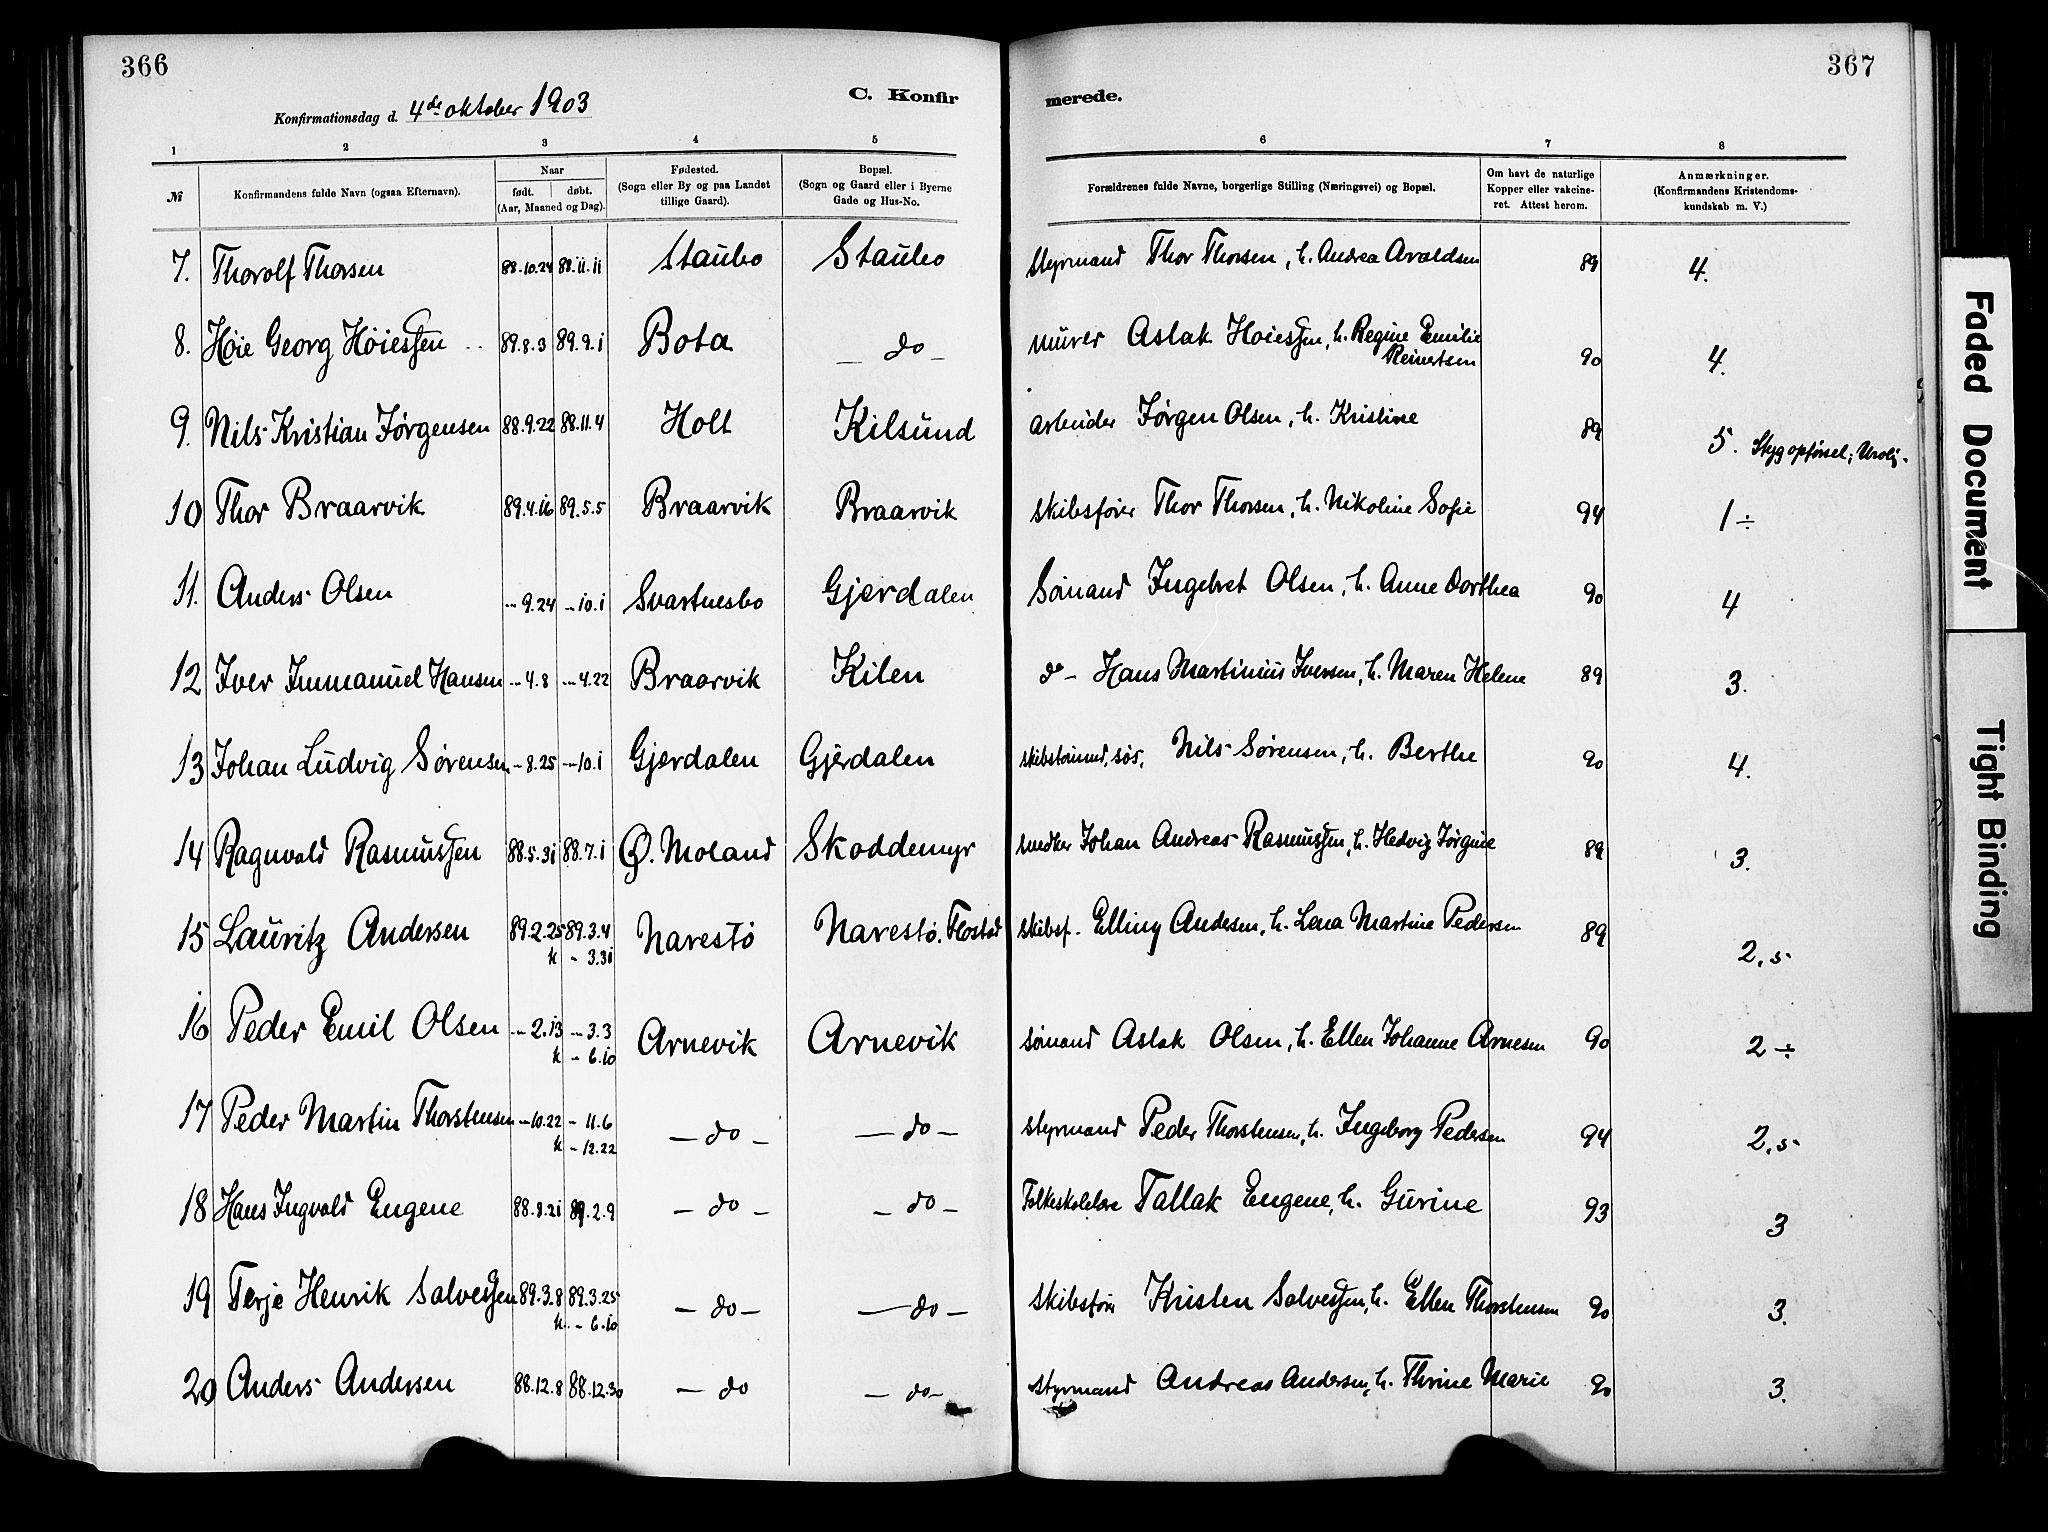 366
367
Konfirmationsdag d. 4de oktober 1903
C. Konfir
merede.
1 2 3 4 5 6 7 8
№ Konfirmandens fulde Navn (ogsaa Efternavn). Naar født. døbt. (Aar, Maaned og Dag). Fødested. (Sogn eller By og paa Landet tillige Gaard). Bopæl. (Sogn og Gaard eller i Byerne Gade og Hus-No. Forældrenes fulde Navne, borgerlige Stilling (Næringsvei) og Bopæl. Om havt de naturlige Kopper eller vakcineret. Attest herom. Anmærkninger. (Konfirmandens Kristendomskundskab m. V.)
7. Thorolf Thorsen 88.10.24 88.11.11 Staubo Staubo styrmand Thor Thorsen, h. Andrea Avaldsen 89 4.
8. Høie Georg Høiessen 89.8.3 89.9.1 Bota — do — murer Aslak Hoiessen, h. Regine Emilie
Reinertsen 90 4.
9. Nils Kristian Jørgensen 88.9.22 88.11.4 Holt Kilsund arbeider Jørgen Olsen, h. Kristine 89 5. Styg opførsel; Urolig.
10 Thor Braarvik 89.4.16 89.5.5 Braarvik Braarvik skibsfører Thor Thorsen, h. Nikoline Sofie 94 1 ÷
11. Anders Olsen - 9.24 - 10.1 Svartnesbo Gjerdalen Sømand Ingebret Olsen, h. Anne Dorthea 90 4
12 Iver Immanuel Hansen - 4.8 - 4.22 Braarvik Kilen do - Hans Martinius Iversen, h. Maren Helene 89 3.
13 Johan Ludvig Sørensen - 8.25 - 10.1 Gjerdalen Gjerdalen skibstømmd, søs, Nils Sørensen, h. Berthe 90 4.
14 Ragnvald Rasmussen 88.5.31 88.7.1 Ø. Moland Skoddemyr snedker Johan Andreas Rasmussen, h. Hedvig Jørgine 89 3.
15 Lauritz Andersen 89.2.25 89.3.4 Narestø Narestø. Flostad skibsf. Elling Andersen, h. Lena Martine Pedersen 89 2,5
k - 3.31
16 Peder Emil Olsen - 2.13 - 3.3 Arnevik Arnevik sømand Aslak Olsen, h. Ellen Johanne Arnesen 90 2 ÷
k - 6.10
17 Peder Martin Thorstensen - 10.22 - 11.6 — do — — do — styrmand Peder Thorstensen, h. Ingeborg Pedersen 94 2,5
k - 12.22
18 Hans Ingvald Eugene 88.8.21 89.2.9 — do — — do — Folkeskolelære Tallak Eugene, h. Gurine 93 3
19 Terje Henrik Salvessen 89.3.8 89.3.25 — do — — do — Skibsfør Kristen Salvessen, h. Ellen Thorstensen 90 3.
k. - 6.10
20 Anders Andersen 88.12.8 88.12.30 — do — do — styrmand Andreas Andersen, h. Thrine Marie 90 3.
Faded Document
Tight Binding